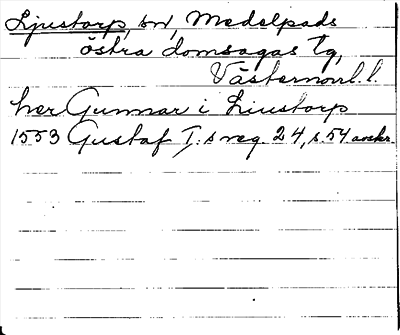 Ljustorp, sn, Medelpads
östra domsagas tg,
Västernorrl. l.
her Gunnar i Liustorp
1553 Gustaf I:s reg. 24, s. 54 avskr.